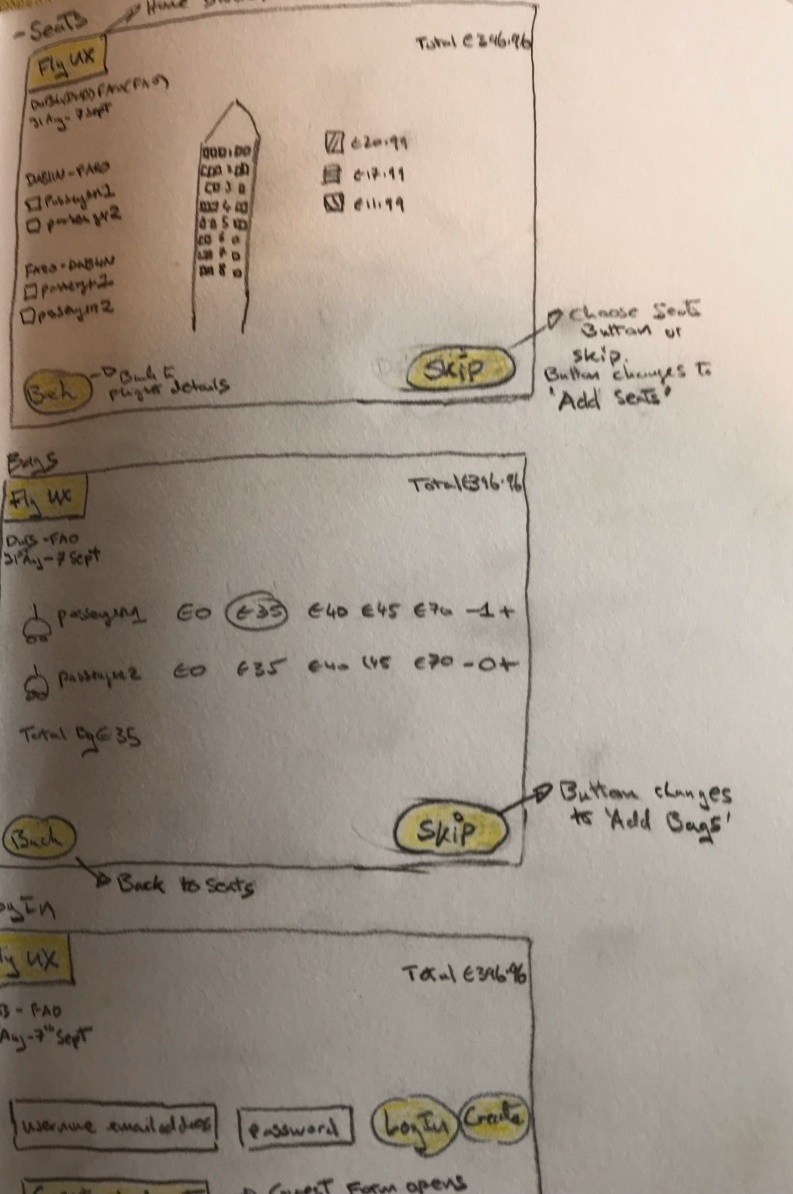 - Seats
Home
Total €346.96
Fly UX
31 Aug - 7 Sept
€20.99
€17.99
€11.99
DUBLIN - FARO
Passenger 1
passenger 2
FARO - DUBLIN
passenger 1
passenger 2
Back
Back to
flight details
Skip
Choose Seats
Button or
skip.
Button changes to
'Add Seats'
Bags
Fly UX
Total €346.96
DUB - FAO
31st Aug - 7 Sept
passenger 1 €0 €35 €40 €45 €70 - 1 +
passenger 2 €0 €35 €40 €45 €70 - 0 +
Total €35
Back
Skip
Button changes
to 'Add Bags'
Back to Seats
ogIn
y UX
Total €346.96
B - FAO
Aug - 7th Sept
username email address
password
LogIn
Create
Guest Form opens